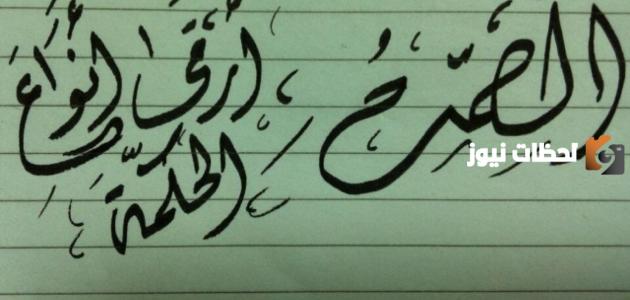 الصمت أرقى أنواع
الحكمة
لحظات نيوز